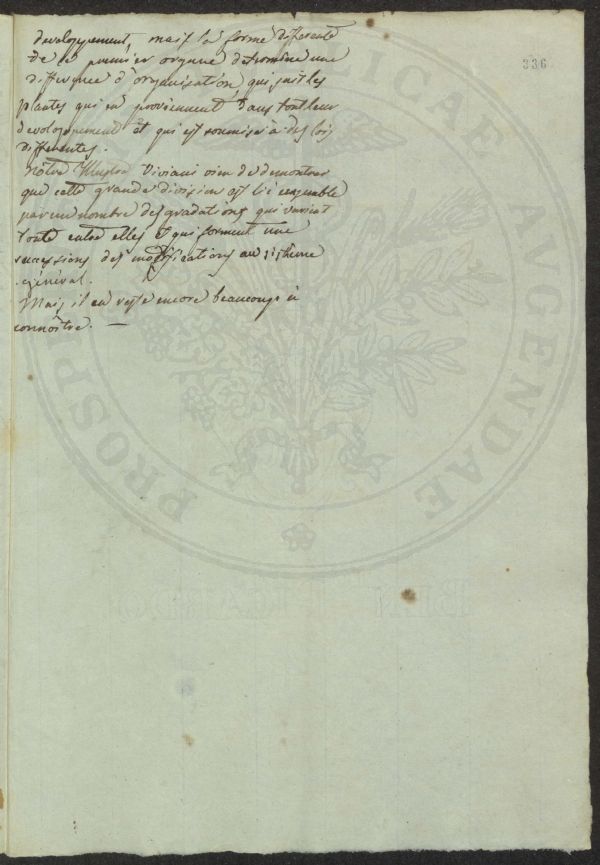 developpement, mais la forme differente
de ce premier organe determine une
difference d'organisation, qui suit les
plantes qui en proviennent, dans tout leur
developement et qui est soumise à des lois
differentes.
Nôtre Illustre Viviani vien de demontrer
que cette grande division est lié ensemble
par un nombre des gradations qui
toute entre elles et qui forment une
successions des modifications au sisthême
général.
Mais il en reste encore beaucoup à
connôitre. —
336
PROSP
LICAE AUGENDAE